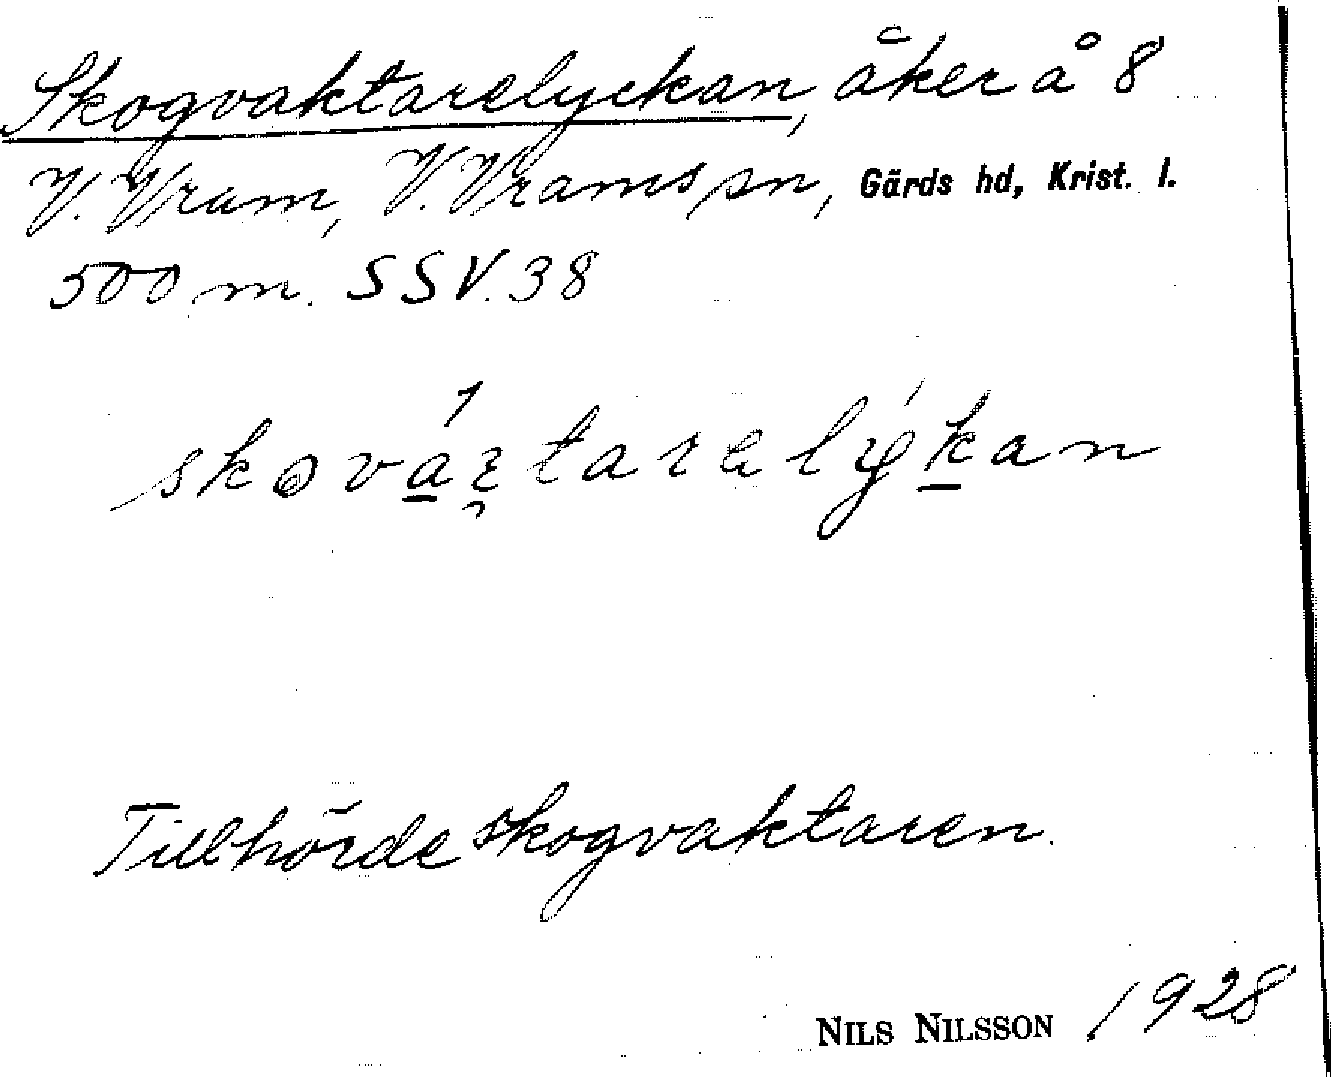 Skogvaktarelyckan, åker å 8
V. Vram, V. Vrams sn, Gärds hd, Krist. l.
500 m. SSV. 38
Tillhörde skogvaktaren.
NILS NILSSON 1928